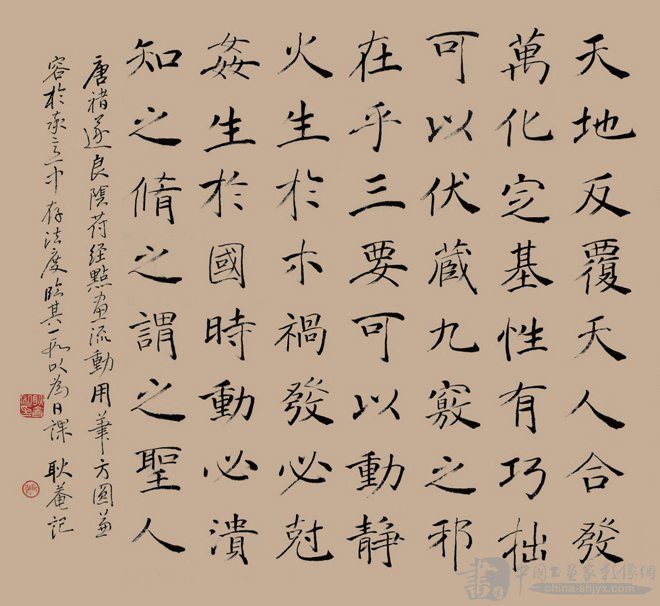 天地反覆天人合發
萬化定基性有巧拙
可以伏藏九竅之邪
在乎三要可以動静
火生於木禍發必尅
姦生於國時動必潰
知之脩之謂之聖人
唐褚遂良陰苻経點画流動用筆方圓兼
容於率意中存法度臨其一以為日課 耿菴記
中国书画家影像網
china-shjyx.com